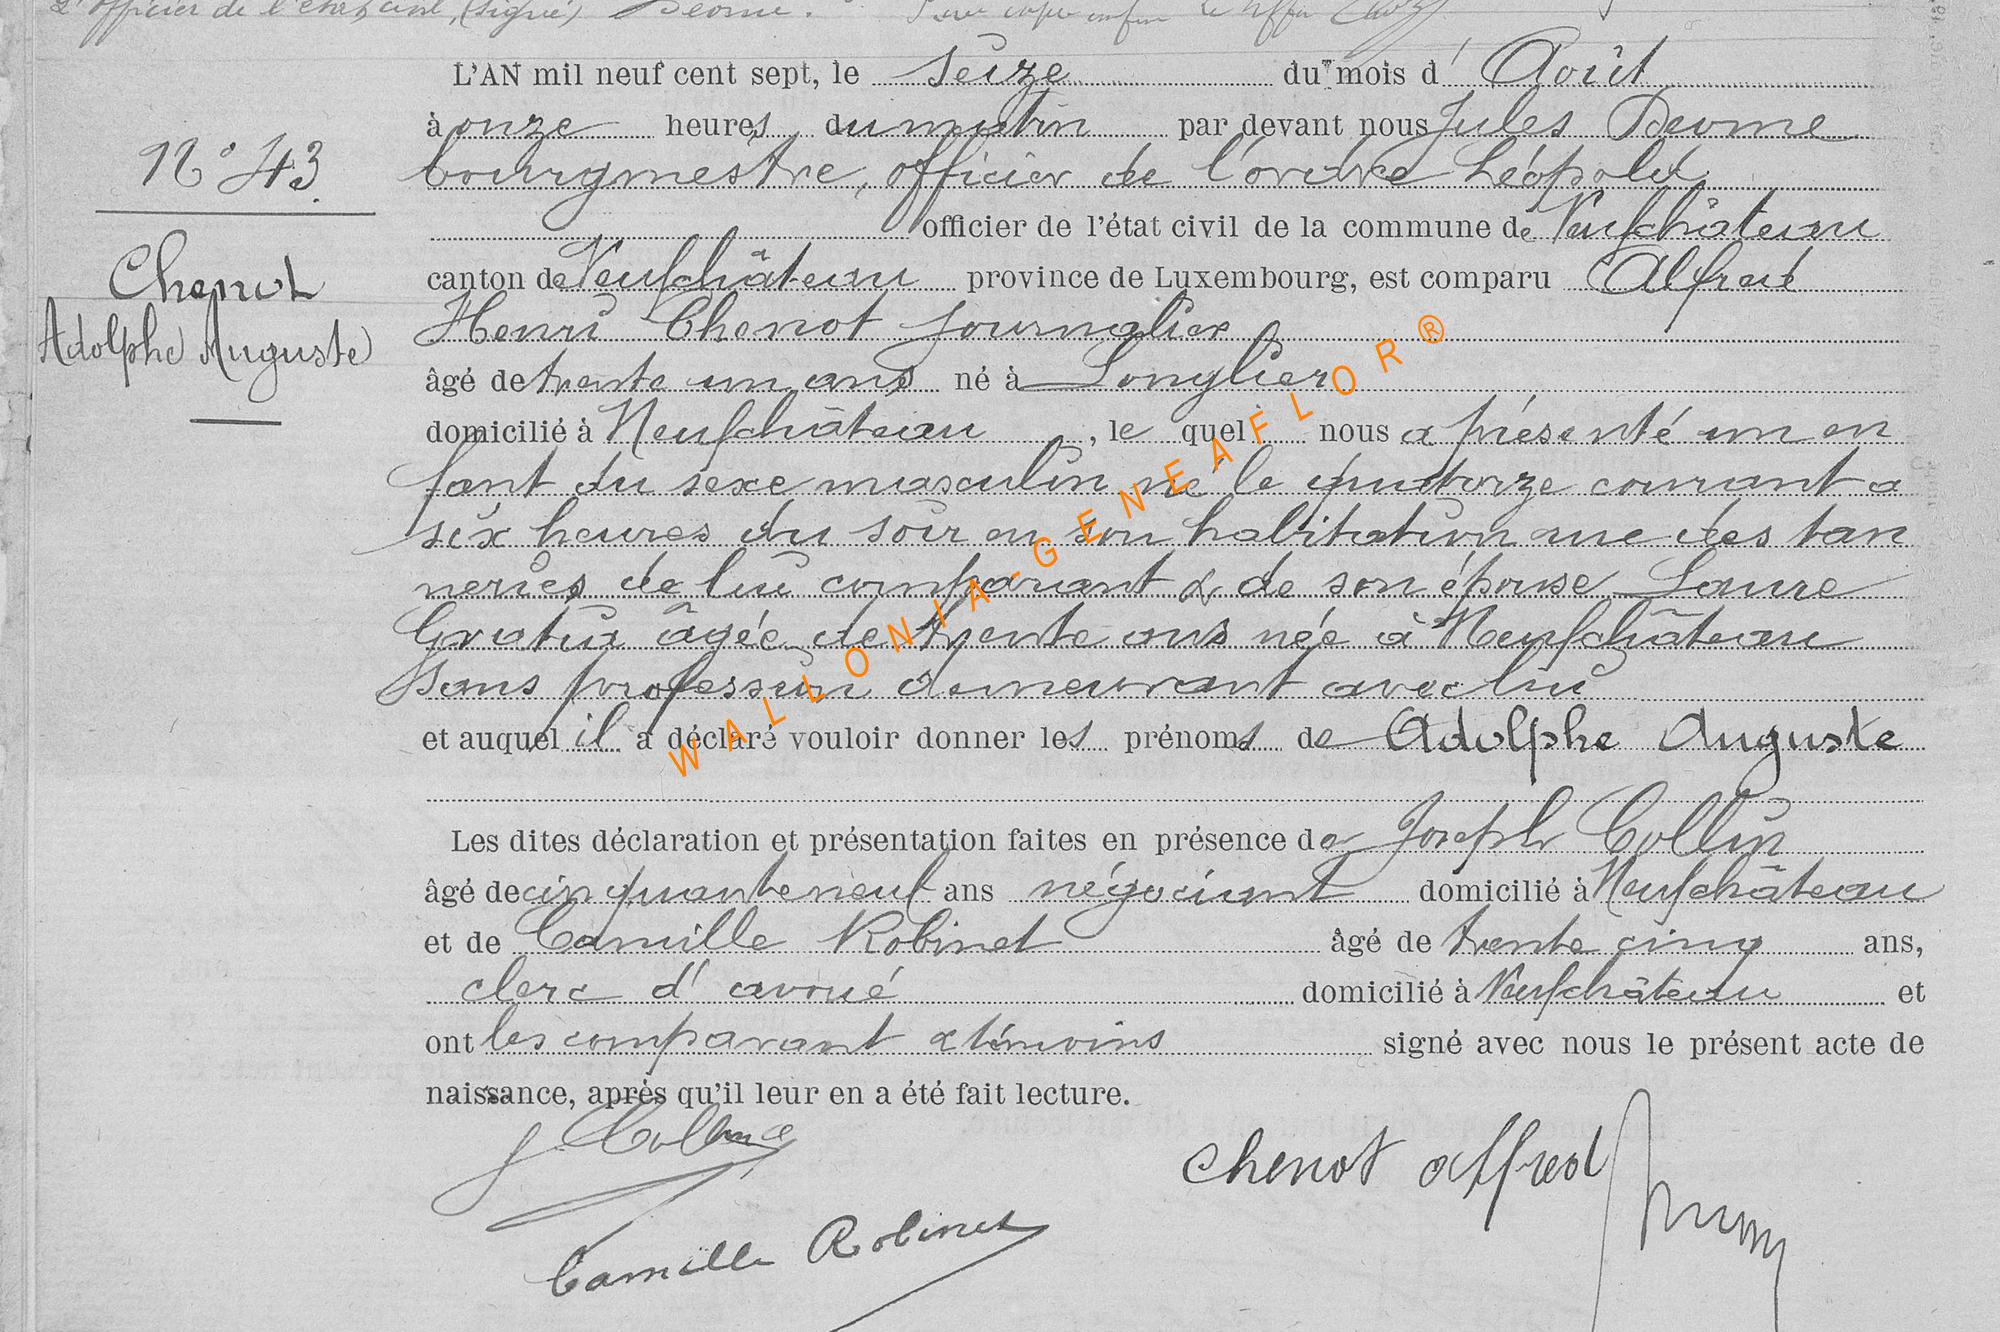 L'officier de l'état civil, (signé) Deome. Pour copie conforme Le Greffier
L'AN mil neuf cent sept, le seize du mois d' Août
à onze heures du matin par devant nous Jules Deome
N° 43 bourgmestre, officier de l'ordre Léopold
officier de l'état civil de la commune de Neufchâteau
Chenot
canton de Neufchâteau province de Luxembourg, est comparu Alfred
Adolphe Auguste
Henri Chenot journalier
âgé de trente un ans né à Longlier
domicilié à Neufchâteau , le quel nous a présenté un en
fant du sexe masculin né le quatorze courant a
six heures du soir en son habitation rue des tan
neries de lui comparant & de son épouse Laure
Gratia âgée de trente ans née à Neufchâteau
sans profession demeurant avec lui
et auquel il a déclaré vouloir donner les prénoms de Adolphe Auguste
Les dites déclaration et présentation faites en présence de Joseph Collin
âgé de cinquante neuf ans négociant domicilié à Neufchâteau
et de Camille Robinet âgé de trente cinq ans,
clerc d'avoué domicilié à Neufchâteau et
ont les comparant & témoins signé avec nous le présent acte de
naissance, après qu'il leur en a été fait lecture.
J. Collin
Chenot alfred
Camille Robinet
WALLONIA-GENEAFLOR®